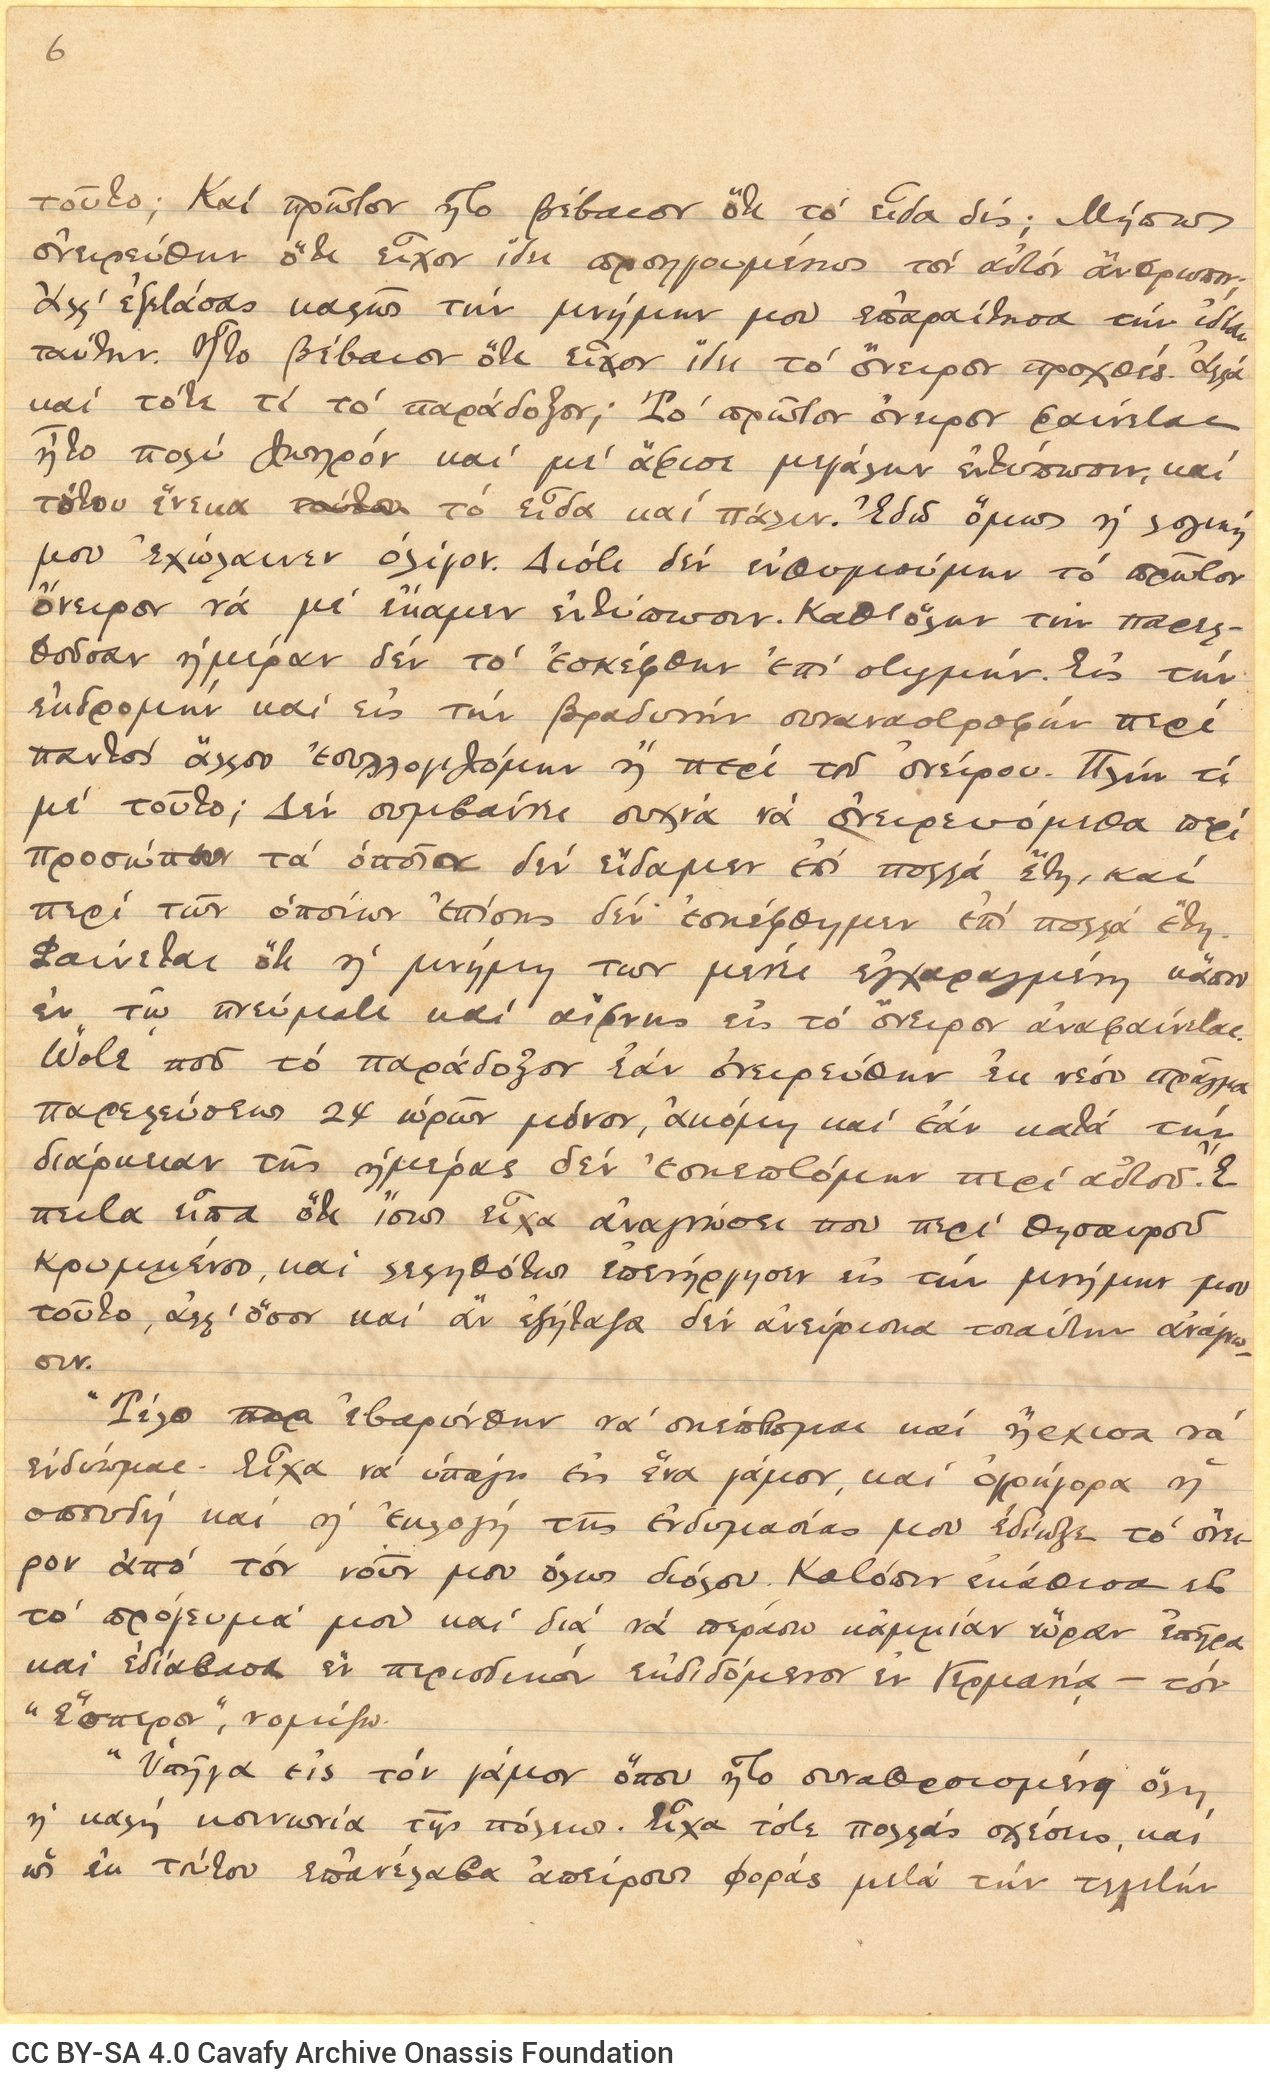 6
τοῦτο; Καί πρῶτον ἦτο βέβαιον ὅτι τό εἶδα δίς; Μήπως
ὀνειρεύθην ὅτι εἶχον ἴδει προηγουμένως τόν αὐτόν ἄνθρωπον;
Ἀλλ' ἐξετάσας καλῶς τήν μνήμην μου ἐπαραίτησα τήν ἰδέαν
ταύτην. Ἦτο βέβαιον ὅτι εἶχον ἴδει τό ὄνειρον προχθές. Ἀλλά
καί τότε τί τό παράδοξον; Τό πρῶτον ὄνειρον φαίνεται
ἦτο πολύ ζωηρόν καί μέ ἄφισε μεγάλην ἐντύπωσιν, καί
τούτου ἕνεκα τούτου τό εἶδα καί πάλιν. Ἐδῶ ὅμως ἡ λογική
μου ἐχώλαινεν ὀλίγον. Διότι δέν ἐνθυμούμην τό πρῶτον
ὄνειρον νά μέ ἔκαμεν ἐντύπωσιν. Καθ' ὅλην την παρελ-
θοῦσαν ἡμέραν δέν τό ἐσκέφθην ἐπί στιγμήν. Εἰς τήν
ἐκδρομήν καί εἰς τήν βραδυνήν συναναστροφήν περί
παντός ἄλλου ἐσυλλογιζόμην ἤ περί τοῦ ὀνείρου. Πλήν τί
μέ τοῦτο; Δέν συμβαίνει συχνά νά ὀνειρευόμεθα περί
προσώπων τά ὁποῖα δέν εἴδαμεν ἐπί πολλά ἔτη, καί
περί τῶν ὁποίων ἐπίσης δέν ἐσκέφθημεν ἐπί πολλά ἔτη.
Φαίνεται ὅτι ἡ μνήμη των μένει ἐγχαραγμένη κάπου
ἐν τῷ πνεύματι καί αἴφνης εἰς τό ὄνειρον ἀναφαίνεται.
Ὥστε ποῦ τό παράδοξον ἐάν ὀνειρεύθην ἐκ νέου πρᾶγμα
παρελεύσεως 24 ὡρῶν μόνον, ἀκόμη καί ἐάν κατά τήν
διάρκειαν τῆς ἡμέρας δέν ἐσκεπτόμην περί αὐτοῦ. Ἔ
πειτα εἶπα ὅτι ἴσως εἶχα ἀναγνώσει που περί θησαυροῦ
κρυμμένου, καί λεληθότως ἐπενήργησεν εἰς τήν μνήμην μου
τοῦτο, ἀλλ' ὅσον καί ἄν ἐξήταζα δέν ἀνεύρισκα τοιαύτην ἀνάγνω-
σιν.
"Τέλο παρ ἐβαρύνθην νά σκέπτομαι καί ἤρχισα νά
ἐνδύωμαι. Εἶχα νά ὑπάγω εἰς ἕνα γάμον, καί ὀγρήγορα ἡ
σπουδή καί ἡ ἐκλογή τῆς ἐνδυμασίας μου ἐδίωξε τό ὄνει-
ρον ἀπό τόν νοῦν μου ὅλως διόλου. Κατόπιν ἐκάθισα εἰς
τό πρόγευμά μου καί διά νά περάσω κἀμμίαν ὥραν ἐπῆρα
καί ἐδιάβασα ἕν περιοδικόν ἐκδιδόμενον ἐν Γερμανίᾳ — τόν
"Ἕσπερον", νομίζω.
"Ὑπῆγα εἰς τόν γάμον ὅπου ἦτο συναθροισμένη ὅλη
ἡ καλή κοινωνία τῆς πόλεως. Εἶχα τότε πολλάς σχέσεις, καί
ὡς ἐκ τούτου ἐπανέλαβα ἀπείρους φοράς μετά τήν τελετήν
CC BY-SA 4.0 Cavafy Archive Onassis Foundation